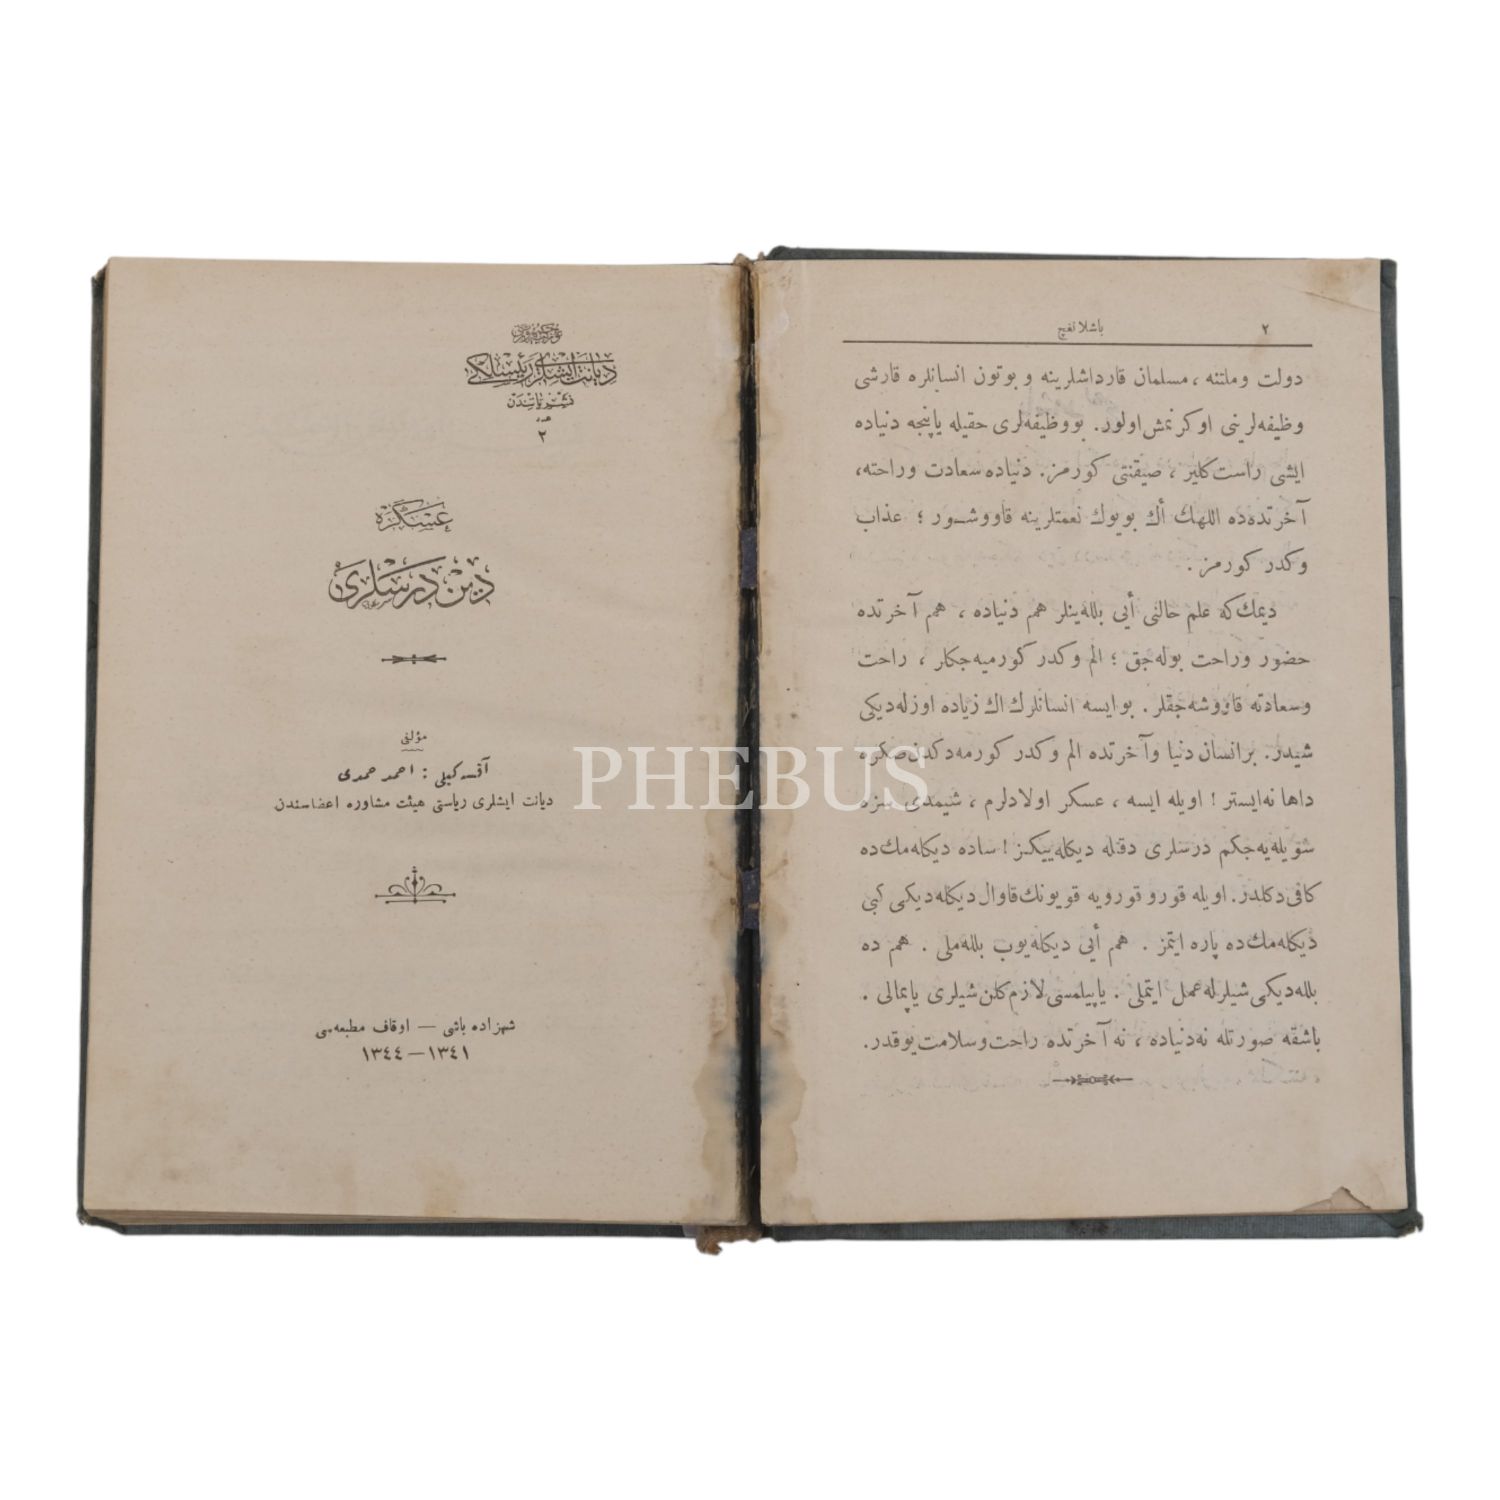 توركيه جمهوريتى
ديانت ايشلرى رئيسلكى
نشرياتندن
عدد
٢
عسكره
دين درسلرى
مؤلفى
آقسه‌كيلى : احمد حمدى
ديانت ايشلرى رياستى هيئت مشاوره اعضاسندن
شهزاده باشى — اوقاف مطبعه‌سى
١٣٤١ — ١٣٤٤
٢
باشلانغج
دولت وملتنه ، مسلمان قارداشلرينه و بوتون انسانلره قارشى
وظيفه‌لرينى اوكرنمش اولور. بووظيفه‌لرى حقيله ياپنجه دنياده
ايشى راست كلير ، صيقنتى كورمز. دنياده سعادت وراحته،
آخرتده‌ده اللهك أك بويوك نعمتلرينه قاووشور ؛ عذاب
وكدر كورمز .
ديمك‌كه علم حالنى أيى بلله‌ينلر هم دنياده ، هم آخرتده
حضور وراحت بوله‌جق ؛ الم وكدر كورميه‌جكلر ، راحت
وسعادته قاووشه‌جقلر . بوايسه انسانلرك اك زياده اوزله‌ديكى
شيدر. برانسان دنيا وآخرتده الم وكدر كورمه‌دكدن‌صكره
داها نه‌ايستر ! اويله ايسه ، عسكر اولادلرم ، شيمدى سزه
سويله‌يه‌جكم درسلرى دقتله ديكله‌ييكز ! ساده ديكله‌مك‌ده
كافى دكلدر. اويله قورو قورويه قويونك‌قاوال ديكله‌ديكى كبى
ديكله‌مك‌ده پاره ايتمز . هم أيى ديكله‌يوب بلله‌ملى . هم ده
بلله‌ديكى شيلرله عمل ايتملى . ياپيلمسى لازم كلن شيلرى ياپمالى .
باشقه صورتله نه‌دنياده ، نه آخرتده راحت وسلامت يوقدر.
PHEBUS